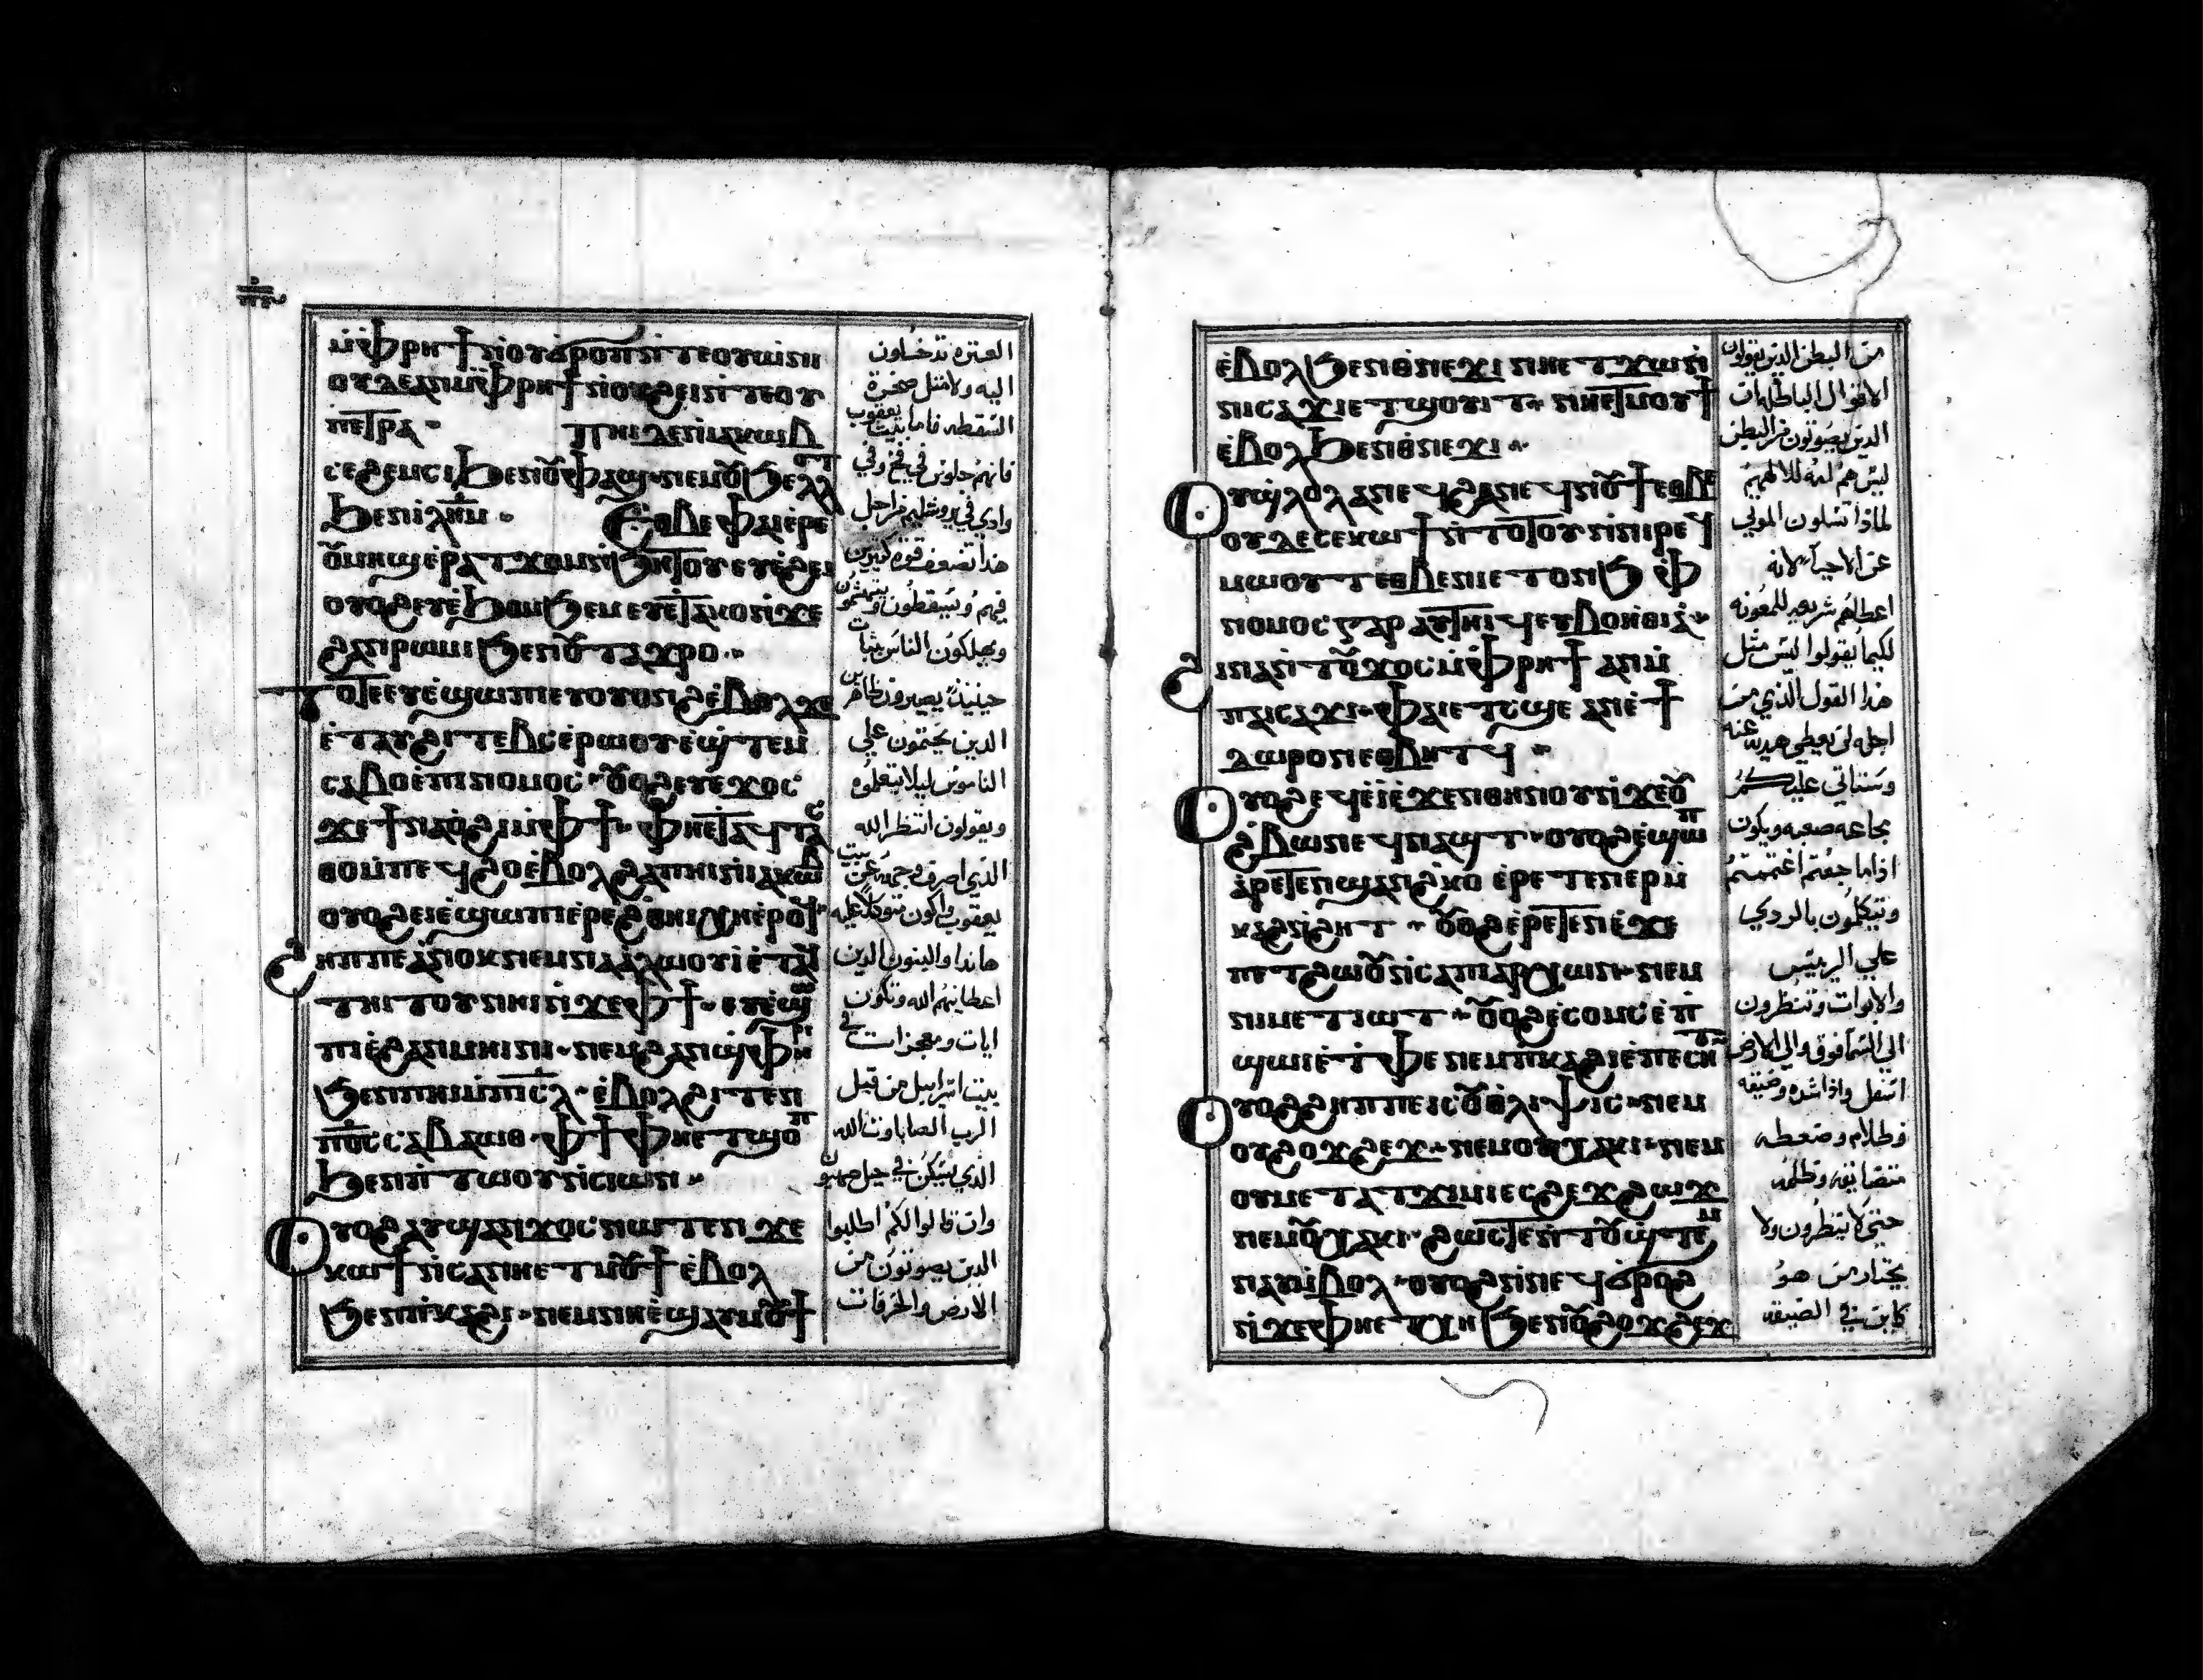 ⲡ︦ⲋ
ⲙ̇ⲫⲣⲏϯ ⲛ̇ⲟⲩϭⲣⲟⲡ ⲛ̇ⲧⲉⲟⲩⲱⲛⲓ
ⲟⲩⲇⲉ ⲁⲛ ⲙ̇ⲫⲣⲏϯ ⲛ̇ⲟⲩϩⲉⲓ ⲛ̇ⲧⲉⲟⲩ
ⲡⲉⲧⲣⲁ · ⲡⲏⲓ ⲇⲉ ⲛ̇ⲓⲁⲕⲱⲃ
ⲥⲉϩⲉⲙⲥⲓ ϧⲉⲛⲟⲩⲫⲁϣ · ⲛⲉⲙⲟⲩϧⲉⲗⲗⲟⲧ
ϧⲉⲛⲓⲗⲏⲙ · ⲉⲑⲃⲉ ⲫⲁⲓ ⲉ̇ⲣⲉ
ⲟⲩⲙⲏϣ ⲉ̇ⲣⲁⲧϫⲟⲙ ⲛ̇ϧⲏⲧⲟⲩ ⲉⲩⲉ̇ϩⲉⲓ
ⲟⲩⲟϩ ⲉⲩⲉ̇ϧⲟⲙϧⲉⲙ ⲉⲩⲉ̇ⲧⲁⲕⲟ ⲛ̇ϫⲉ
ϩⲁⲛⲣⲱⲙⲓ ϧⲉⲛⲟⲩⲧⲁϫⲣⲟ ·
ⲧⲟⲧⲉ ⲉⲩⲉ̇ϣⲱⲡⲓ ⲉⲩⲟⲩⲟⲛϩ ⲉ̇ⲃⲟⲗ ϫⲉ
ⲉ̇ⲧⲁⲩϩⲓⲧⲉⲃⲥ ⲉ̇ⲣⲱⲟⲩ ⲉ̇ϣⲧⲉⲙ
ⲥⲁⲃⲟ ⲉ̇ⲡⲓⲛⲟⲙⲟⲥ · ⲟⲩⲟϩ ⲉⲩⲉϫⲟⲥ
ϫⲉ ϯⲛⲁⲟ̇ϩⲓ ⲙ̇ⲫϯ · ⲫⲏⲉⲧⲁϥⲧⲁⲥ
ⲑⲟ ⲙ̇ⲡⲉϥϩⲟ ⲉ̇ⲃⲟⲗϩⲁ ⲡⲏⲓ ⲛ̇ⲓⲁⲕⲱⲃ
ⲟⲩⲟϩ ⲉⲓⲉ̇ϣⲱⲡⲓ ⲉ̇ⲣⲉ ϩⲑⲏⲓ ⲭⲏ ⲉ̇ⲣⲟϥ
ϩⲏⲡⲡⲉ ⲁ̇ⲛⲟⲕ ⲛⲉⲙ ⲛⲓⲁⲗⲱⲟⲩⲓ̇ ⲉ̇ⲧⲁϥ
ⲧⲏⲓⲧⲟⲩ ⲛⲏⲓ ⲛ̇ϫⲉ ⲫϯ · ⲉⲩⲉ̇ϣⲱ
ⲡⲓ ⲉ̇ϩⲁⲛⲙⲏⲓⲛⲓ · ⲛⲉⲙ ϩⲁⲛϣⲫⲏⲣⲓ
ϧⲉⲛ ⲡⲏⲓ ⲙ̇ⲡⲓⲥ̅ⲗ̅ · ⲉ̇ⲃⲟⲗϩⲓⲧⲉⲛ
ⲡⲟ̅ⲥ̅ ⲥⲁⲃⲁⲱⲑ · ⲫϯ ⲫⲏⲉⲧϣⲟⲡ
ϧⲉⲛ ⲡ̇ⲧⲱⲟⲩ ⲛ̇ⲥⲓⲱⲛ ·
ⲟⲩⲟϩ ⲁⲩϣⲁⲛϫⲟⲥ ⲛⲱⲧⲉⲛ ϫⲉ
ⲕⲱϯ ⲛ̇ⲥⲁ ⲛⲏⲉⲧⲙⲟⲩϯ ⲉ̇ⲃⲟⲗ
ϧⲉⲛ ⲡ̇ⲕⲁϩⲓ · ⲛⲉⲙ ⲛⲏⲉ̇ϣⲁⲩⲙⲟⲩϯ
العثره تدخلون
اليه ولا مثل صخرة
السقطه فاما بيت يعقوب
فانهم جلوس في فخ وفي
وادي في يروشليم من اجل
هذا تضعف قوة كثيرين
فيهم ويسقطون ويتهشمون
ويهلكون الناس بثبات
حينيذ يصيرون ظاهرين
الذين يختمون علي
الناموس ليلا يتعلموه
ويقولون انتظر الله
الذي اصرف وجهه عن بيت
يعقوب واكون متوكلا عليه
هانذا والبنون الذين
اعطانيهم الله وتكون
ايات ومعجزات في
بيت اسراييل من قبل
الرب الصاباوت الله
الذي يسكن في جبل صهيون
وان قالوا لكم اطلبوا
الذين يصوتون من
الارض والخرفات
ⲉ̇ⲃⲟⲗ ϧⲉⲛ ⲑⲛⲉϫⲓ ⲛⲏⲉⲧϫⲱ ⲛ̇
ⲛⲓⲥⲁϫⲓ ⲉⲧϣⲟⲩⲓⲧ · ⲛⲏⲉⲧⲙⲟⲩϯ
ⲉ̇ⲃⲟⲗ ϧⲉⲛ ⲑⲛⲉϫⲓ ·
ⲟⲩϣⲗⲟⲗ ⲁⲛⲉϥϩⲁ ⲛⲉϥⲛⲟⲩϯ ⲉⲑⲃⲉ
ⲟⲩ ⲇⲉ ⲥⲉⲕⲱϯ ⲛ̇ⲧⲟⲧⲟⲩ ⲛ̇ⲛⲓⲣⲉϥ
ⲙⲱⲟⲩⲧ ⲉⲑⲃⲉ ⲛⲉⲧⲟⲛϧ
ⲛⲟⲙⲟⲥ ⲅⲁⲣ ⲁϥⲧⲏⲓϥ ⲉⲩⲃⲟⲏ̇ⲑⲓⲁ ·
ϩⲓⲛⲁ ⲛ̇ⲧⲟⲩϫⲟⲥ ⲙ̇ⲫⲣⲏϯ ⲁⲛ ⲙ̇
ⲡⲁⲓⲥⲁϫⲓ · ⲫⲁⲓ ⲉⲧⲥϣⲉ ⲁⲛ ⲉ̇ϯ
ⲇⲱⲣⲟⲛ ⲉⲑⲃⲏⲧϥ ·
ⲟⲩⲟϩ ⲉϥⲉ̇ⲓ̇ ⲉ̇ϫⲉⲛ ⲑⲏⲛⲟⲩ ⲛ̇ϫⲉ ⲟⲩ
ϩ̇ⲃⲱⲛ ⲉϥⲛⲁϣⲧ · ⲟⲩⲟϩ ⲉ̇ϣⲱⲡ
ⲁ̇ⲣⲉⲧⲉⲛϣⲁⲛϩ̇ⲕⲟ ⲉ̇ⲣⲉⲧⲉⲛⲉⲣⲙ̇
ⲕⲁϩ ⲛ̇ϩⲏⲧ · ⲟⲩⲟϩ ⲉ̇ⲣⲉⲧⲉⲛⲉ̇ϫⲉ
ⲡⲉⲧϩⲱⲟⲩ ⲛ̇ⲥⲁ ⲡⲁⲣⲭⲱⲛ · ⲛⲉⲙ
ⲛⲓⲙⲉⲧⲓⲱⲧ · ⲟⲩⲟϩ ⲉ̇ⲥⲟⲙⲥ ⲉ̇ⲡ
ϣⲱⲓ ⲉ̇ⲧⲫⲉ ⲛⲉⲙ ⲡ̇ⲕⲁϩⲓ ⲉ̇ⲡⲉⲥⲏⲧ
ⲟⲩⲟϩ ϩⲏⲡⲡⲉ ⲓⲥ ⲟⲩⲑⲗⲓⲯⲓⲥ · ⲛⲉⲙ
ⲟⲩϩⲟϫϩⲉϫ · ⲛⲉⲙ ⲟⲩⲭⲁⲕⲓ · ⲛⲉⲙ
ⲟⲩⲙⲉⲧⲁⲧϫⲓⲙⲓ ⲉⲥϩⲉϫϩⲱϫ
ⲛⲉⲙ ⲟⲩⲭⲁⲕⲓ · ϩⲱⲥⲧⲉ ⲛ̇ⲧⲟⲩϣⲧⲉⲙ
ⲛⲁⲩ ⲙ̇ⲃⲟⲗ · ⲟⲩⲟϩ ⲛ̇ⲛⲉϥϭⲣⲟϩ
ⲛ̇ϫⲉ ⲫⲏⲉⲧⲭⲏ ϧⲉⲛ ⲟⲩϩⲟϫϩⲉϫ
من البطن الذين يقولون
الاقوال الباطله
الذين يصوتون من البطن
ليس هم امه للالههم
لماذا تسلون الموتي
عن الاحيا لانه
اعطاهم شريعه للمعونه
لكيما يقولوا ليس مثل
هذا القول الذي من
اجله لن يعطي هديه عنه
وستاتي عليكم
مجاعه صعبه ويكون
اذا ما جعتم اغتممتم
وتتكلمون بالردي
علي الرييس
والابوات وتنظرون
الي السما فوق والي الارض
اسفل واذا شده وضيقه
وظلام وضغطه
متضايقه وظلمه
حتي لا ينظرون ولا
يختار من هو
كاين في الضيقه